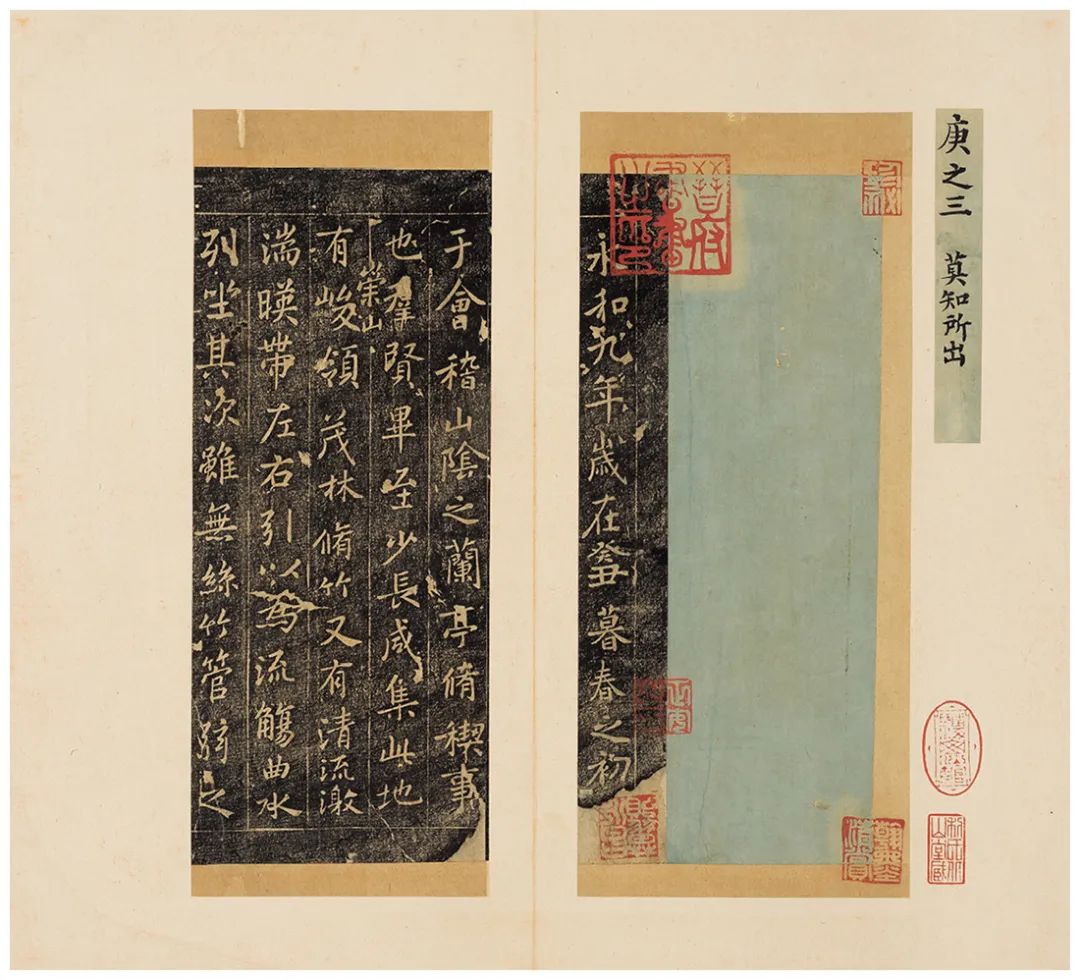 庚之三 莫知所出
晉府書畫之印
永和九年歲在癸丑暮春之初
于會稽山陰之蘭亭脩稧事
也羣賢畢至少長咸集此地
崇山
有峻領茂林脩竹又有清流激
湍暎帶左右引以為流觴曲水
列坐其次雖無絲竹管弦之